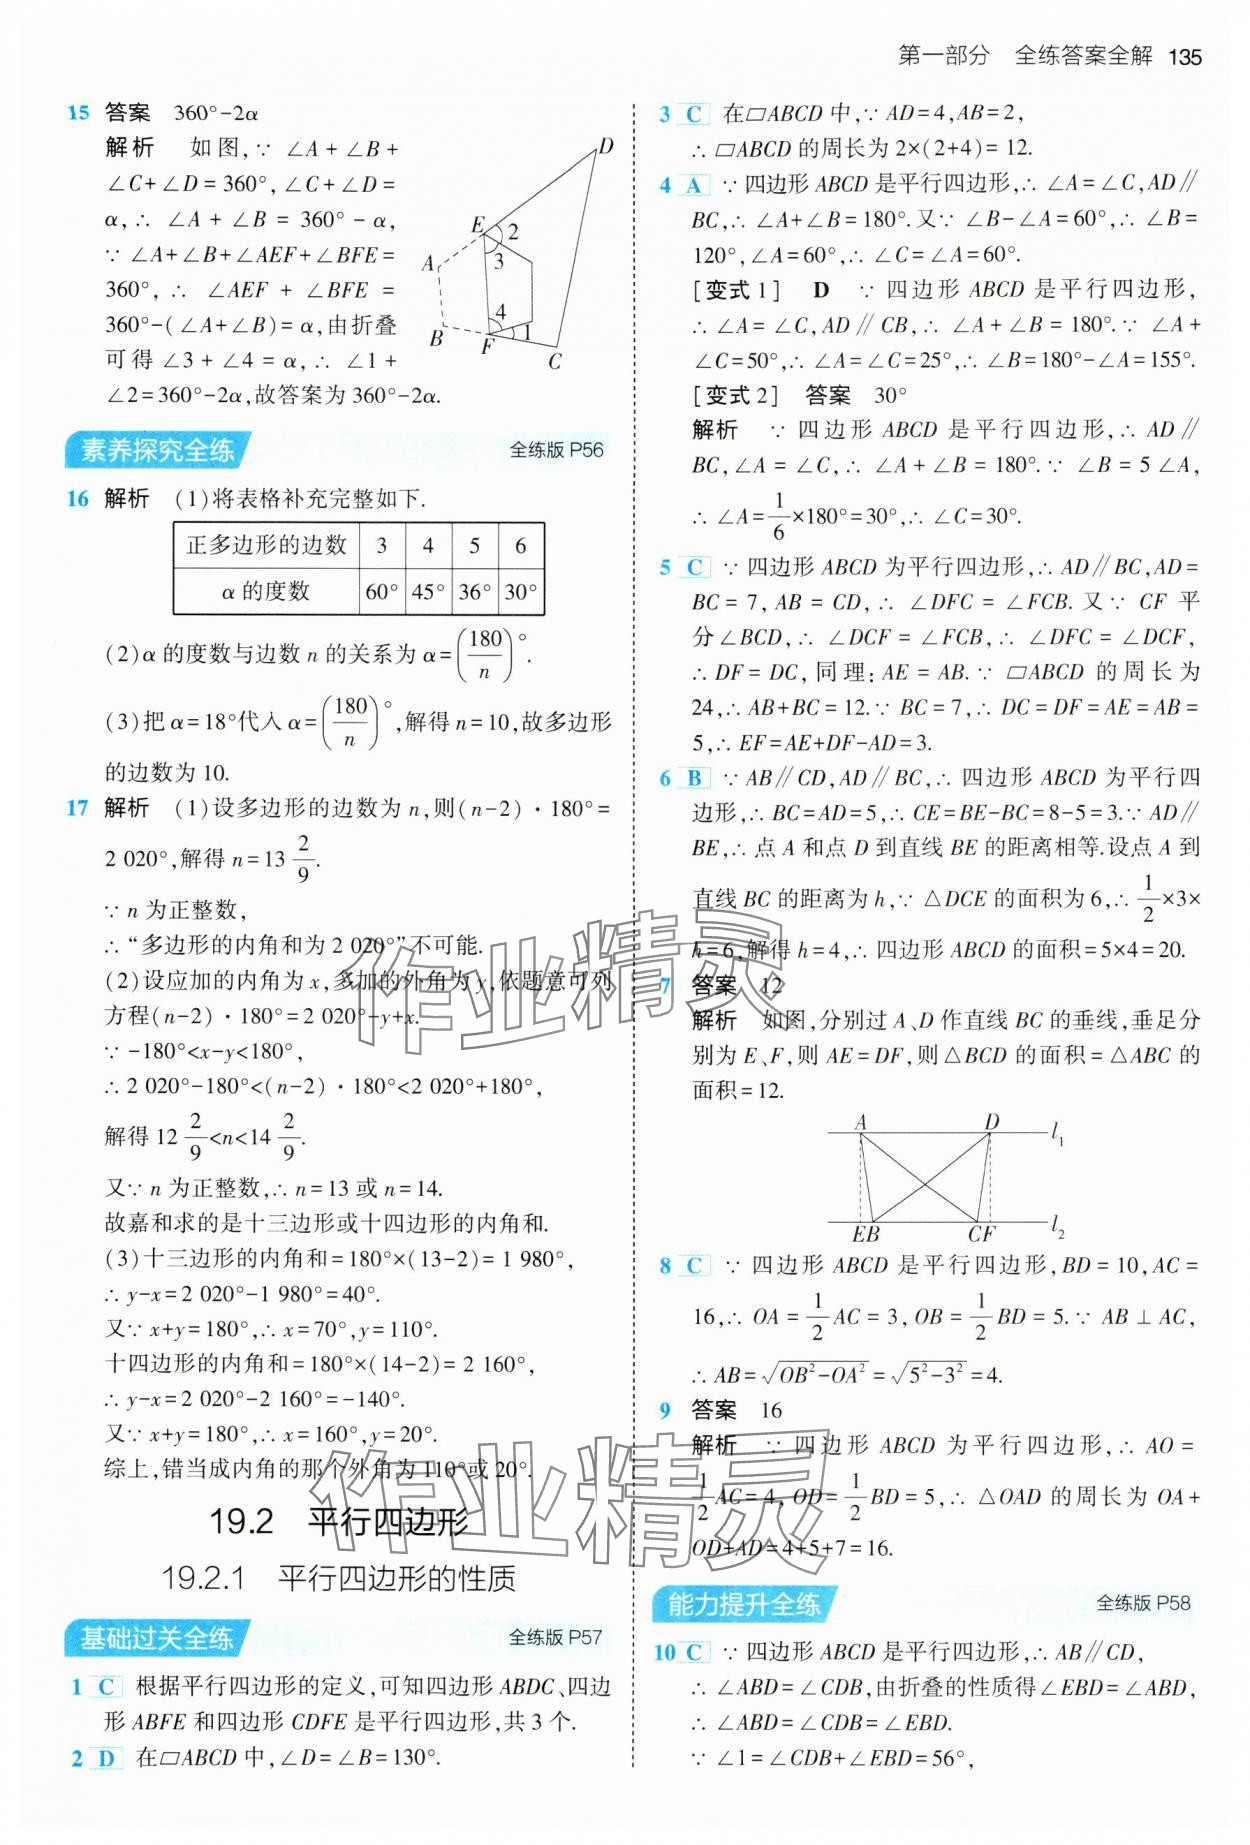 第一部分　全练答案全解 135
15 答案　360°-2α
解析　如图,∵ ∠A+∠B+
∠C+∠D=360°,∠C+∠D=
α,∴ ∠A+∠B=360°-α,
∵ ∠A+∠B+∠AEF+∠BFE=
360°,∴ ∠AEF+∠BFE=
360°-(∠A+∠B)=α,由折叠
可得∠3+∠4=α,∴ ∠1+
∠2=360°-2α,故答案为360°-2α.
D
E
2
3
A
4
B
F
1
C
素养探究全练　全练版 P56
16 解析　(1)将表格补充完整如下.
正多边形的边数 3 4 5 6
α的度数 60° 45° 36° 30°
(2)α的度数与边数n的关系为α=(180/n)°.
(3)把α=18°代入α=(180/n)°,解得n=10,故多边形
的边数为10.
17 解析　(1)设多边形的边数为n,则(n-2)·180°=
2 020°,解得n=13 2/9.
∵ n为正整数,
∴ “多边形的内角和为2 020°”不可能.
(2)设应加的内角为x,多加的外角为y,依题意可列
方程(n-2)·180°=2 020°-y+x.
∵ -180°<x-y<180°,
∴ 2 020°-180°<(n-2)·180°<2 020°+180°,
解得12 2/9<n<14 2/9.
又∵ n为正整数,∴ n=13或n=14.
故嘉和求的是十三边形或十四边形的内角和.
(3)十三边形的内角和=180°×(13-2)=1 980°,
∴ y-x=2 020°-1 980°=40°.
又∵ x+y=180°,∴ x=70°,y=110°.
十四边形的内角和=180°×(14-2)=2 160°,
∴ y-x=2 020°-2 160°=-140°.
又∵ x+y=180°,∴ x=160°,y=20°.
综上,错当成内角的那个外角为110°或20°.
19.2　平行四边形
19.2.1　平行四边形的性质
基础过关全练　全练版 P57
1 C　根据平行四边形的定义,可知四边形ABDC、四边
形ABFE和四边形CDFE是平行四边形,共3个.
2 D　在▱ABCD中,∠D=∠B=130°.
3 C　在▱ABCD中,∵ AD=4,AB=2,
∴ ▱ABCD的周长为2×(2+4)=12.
4 A　∵ 四边形ABCD是平行四边形,∴ ∠A=∠C,AD∥
BC,∴ ∠A+∠B=180°.又∵ ∠B-∠A=60°,∴ ∠B=
120°,∠A=60°,∴ ∠C=∠A=60°.
[变式1]　D　∵ 四边形ABCD是平行四边形,
∴ ∠A=∠C,AD∥CB,∴ ∠A+∠B=180°.∵ ∠A+
∠C=50°,∴ ∠A=∠C=25°,∴ ∠B=180°-∠A=155°.
[变式2]　答案　30°
解析　∵ 四边形ABCD是平行四边形,∴ AD∥
BC,∠A=∠C,∴ ∠A+∠B=180°.∵ ∠B=5∠A,
∴ ∠A=1/6×180°=30°,∴ ∠C=30°.
5 C　∵ 四边形ABCD为平行四边形,∴ AD∥BC,AD=
BC=7,AB=CD,∴ ∠DFC=∠FCB.又∵ CF平
分∠BCD,∴ ∠DCF=∠FCB,∴ ∠DFC=∠DCF,
∴ DF=DC,同理:AE=AB.∵ ▱ABCD的周长为
24,∴ AB+BC=12.∵ BC=7,∴ DC=DF=AE=AB=
5,∴ EF=AE+DF-AD=3.
6 B　∵ AB∥CD,AD∥BC,∴ 四边形ABCD为平行四
边形,∴ BC=AD=5,∴ CE=BE-BC=8-5=3.∵ AD∥
BE,∴ 点A和点D到直线BE的距离相等.设点A到
直线BC的距离为h,∵ △DCE的面积为6,∴ 1/2×3×
h=6,解得h=4,∴ 四边形ABCD的面积=5×4=20.
7 答案　12
解析　如图,分别过A、D作直线BC的垂线,垂足分
别为E、F,则AE=DF,则△BCD的面积=△ABC的
面积=12.
A D l₁
EB CF l₂
8 C　∵ 四边形ABCD是平行四边形,BD=10,AC=
16,∴ OA=1/2AC=3,OB=1/2BD=5.∵ AB⊥AC,
∴ AB=√(OB²-OA²)=√(5²-3²)=4.
9 答案　16
解析　∵ 四边形ABCD为平行四边形,∴ AO=
1/2AC=4,OD=1/2BD=5,∴ △OAD的周长为OA+
OD+AD=4+5+7=16.
能力提升全练　全练版 P58
10 C　∵ 四边形ABCD是平行四边形,∴ AB∥CD,
∴ ∠ABD=∠CDB,由折叠的性质得∠EBD=∠ABD,
∴ ∠ABD=∠CDB=∠EBD.
∵ ∠1=∠CDB+∠EBD=56°,
作业精灵
作业精灵